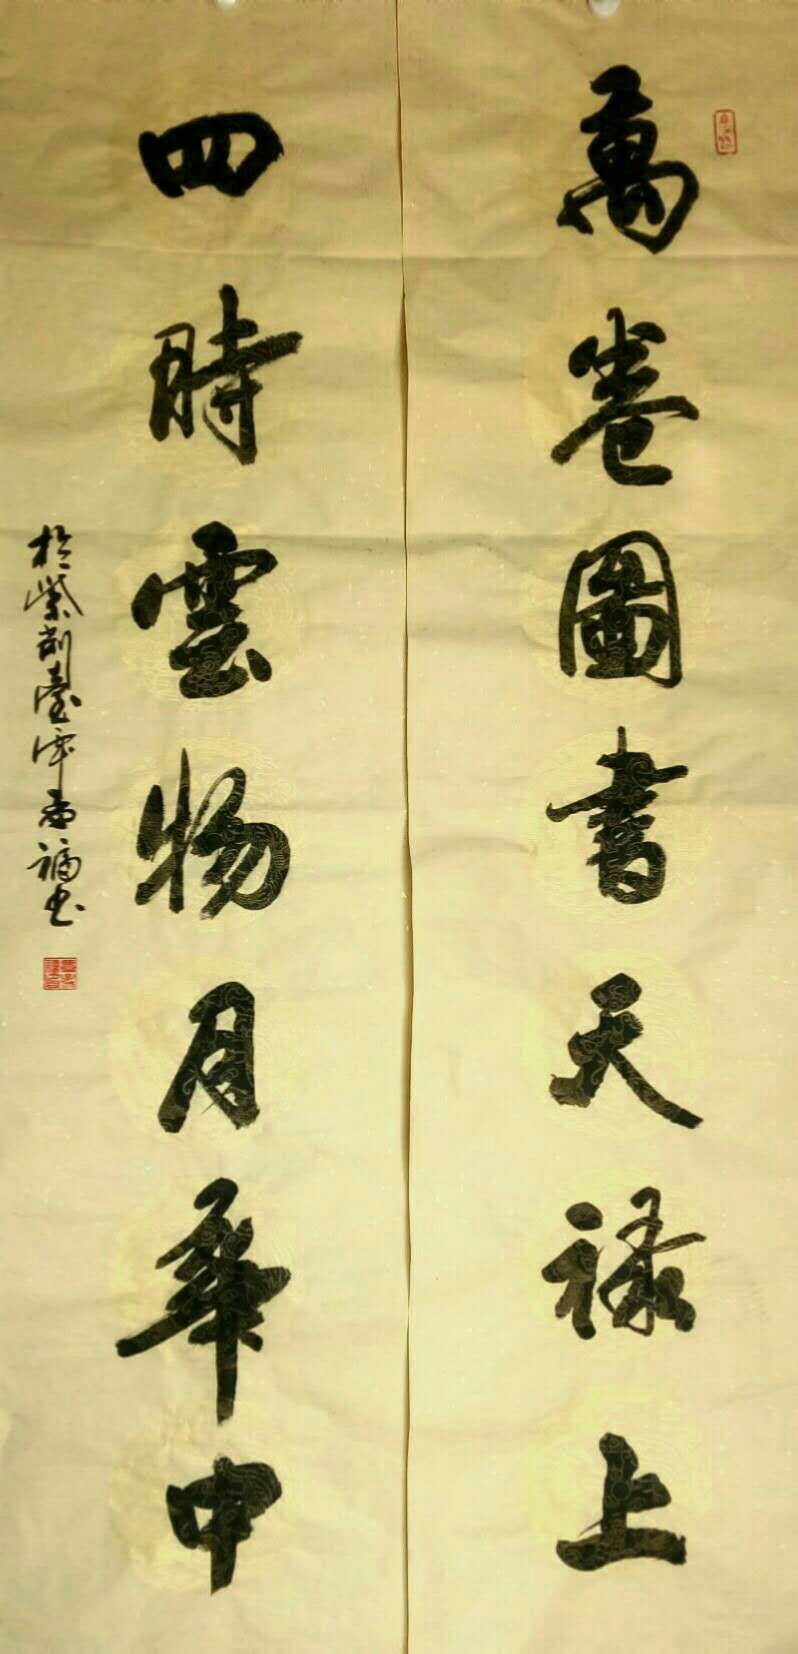 萬卷圖書天禄上
四時雲物月華中
於紫荆臺
福書